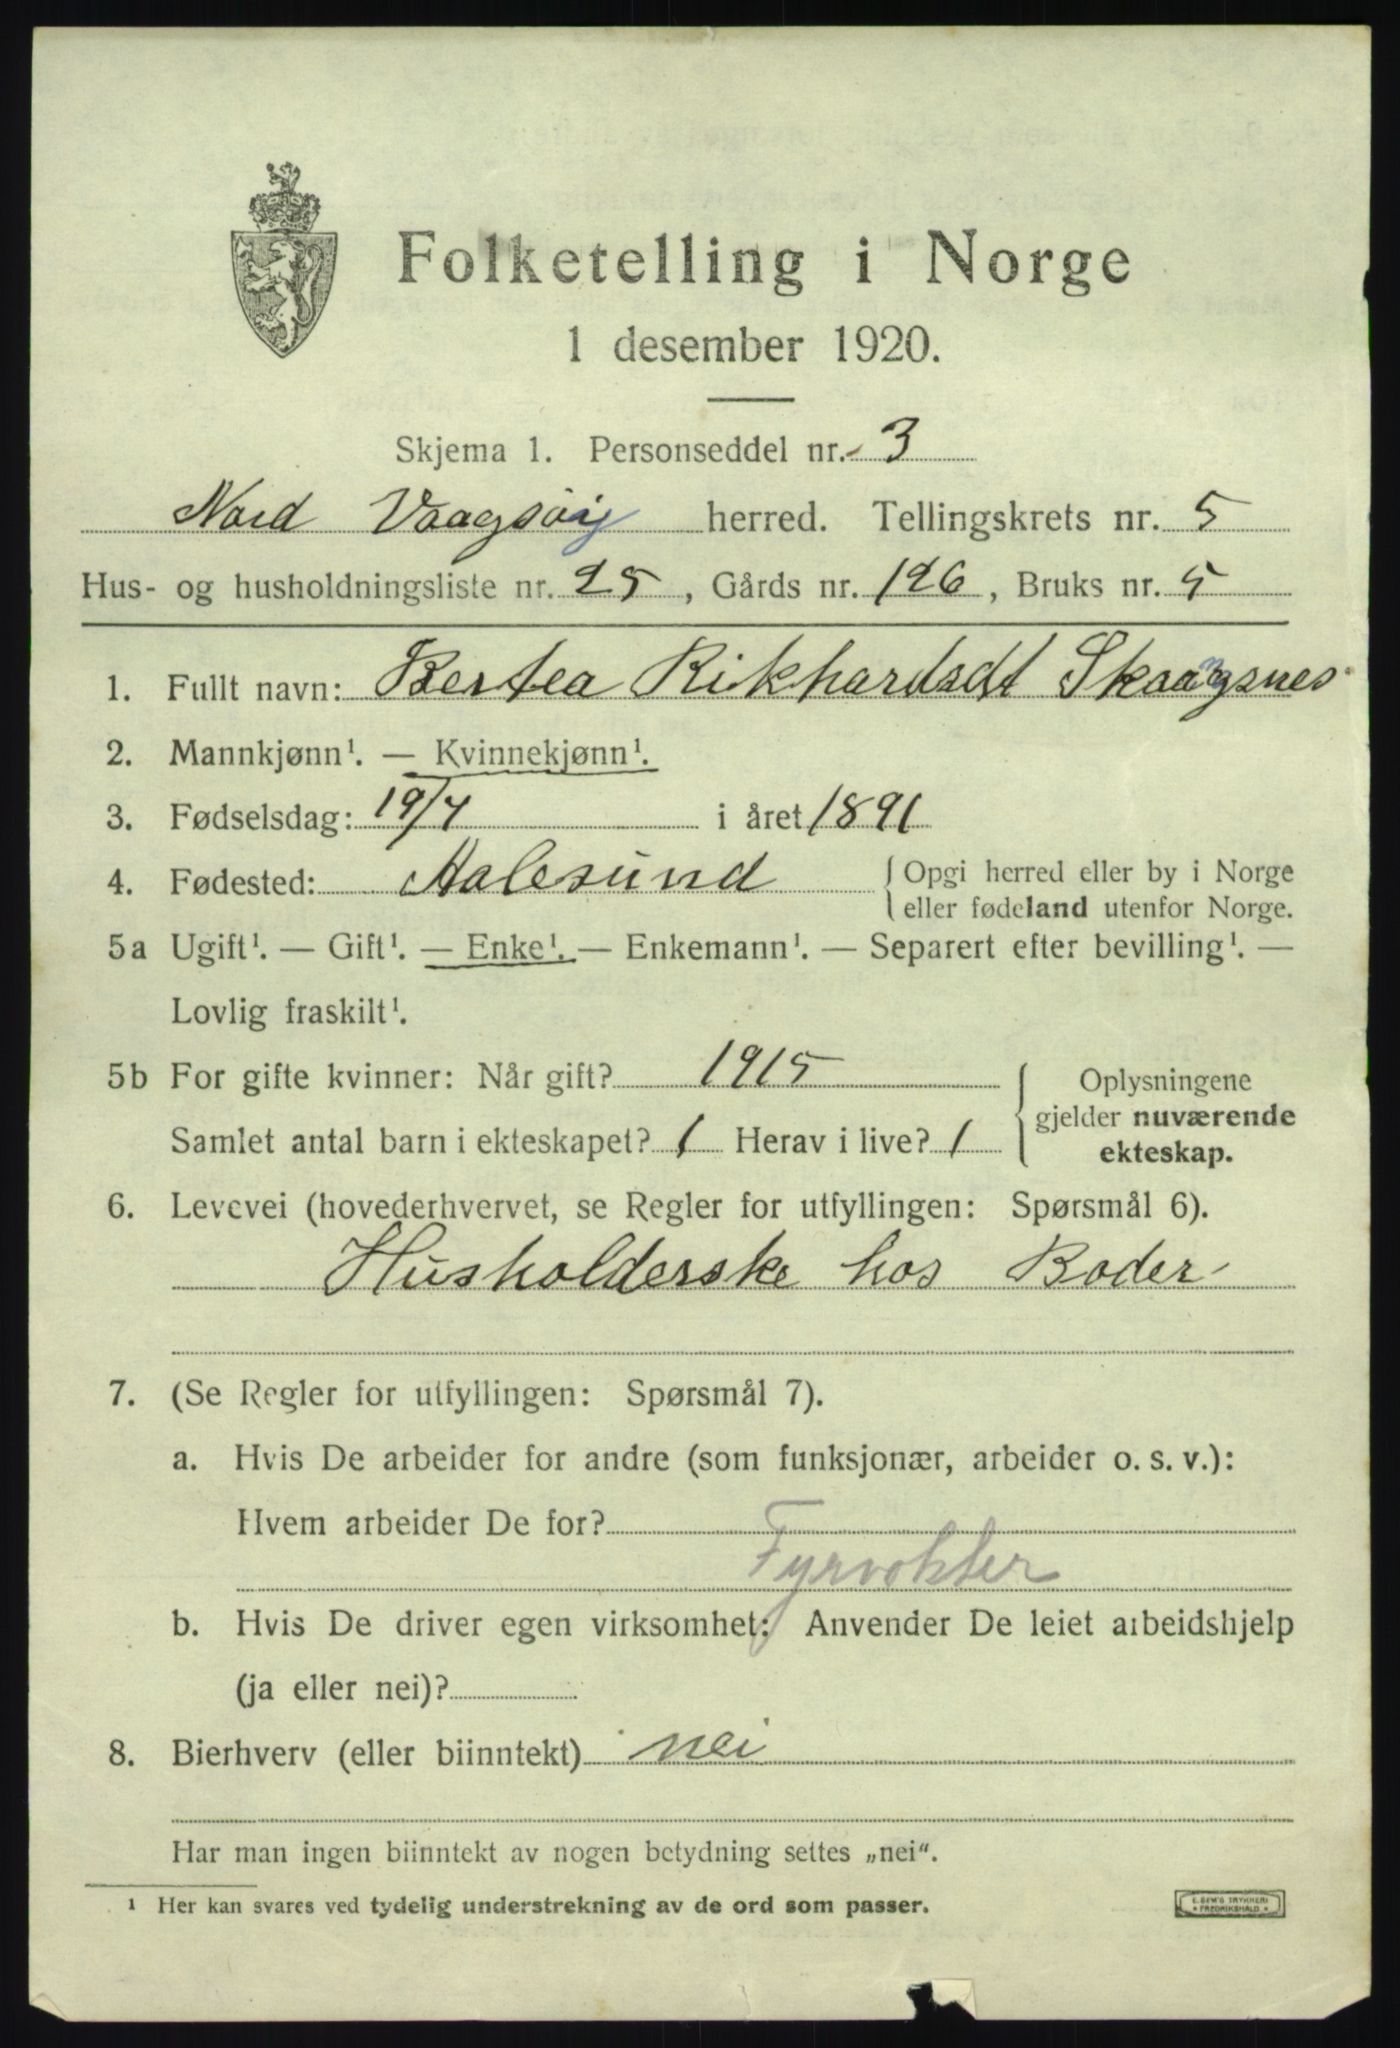 Folketelling i Norge
1 desember 1920.
Skjema 1. Personseddel nr. 3
Nord Vaagsøy herred. Tellingskrets nr. 5
Hus- og husholdningsliste nr. 25, Gårds nr. 126, Bruks nr. 5
1. Fullt navn: Bertea Rikhardsdt Skaagsnes
2. Mannkjønn¹. — Kvinnekjønn¹.
3. Fødselsdag: 19/7 i året 1891
4. Fødested: Aalesund { Opgi herred eller by i Norge
eller fødeland utenfor Norge.
5a Ugift¹. — Gift¹. — Enke¹. — Enkemann¹. — Separert efter bevilling¹. —
Lovlig fraskilt¹.
5b For gifte kvinner: Når gift? 1915
Samlet antal barn i ekteskapet? 1 Herav i live? 1
{ Oplysningene
gjelder nuværende
ekteskap.
6. Levevei (hovederhvervet, se Regler for utfyllingen: Spørsmål 6).
Husholderske hos Bader
7. (Se Regler for utfyllingen: Spørsmål 7).
a. Hvis De arbeider for andre (som funksjonær, arbeider o. s. v.):
Hvem arbeider De for?
Fyrvokter
b. Hvis De driver egen virksomhet: Anvender De leiet arbeidshjelp
(ja eller nei)?
8. Bierhverv (eller biinntekt) nei
Har man ingen biinntekt av nogen betydning settes „nei“.
¹ Her kan svares ved tydelig understrekning av de ord som passer.
E. SEM'S TRYKKERI
* FREDRIKSHALD *